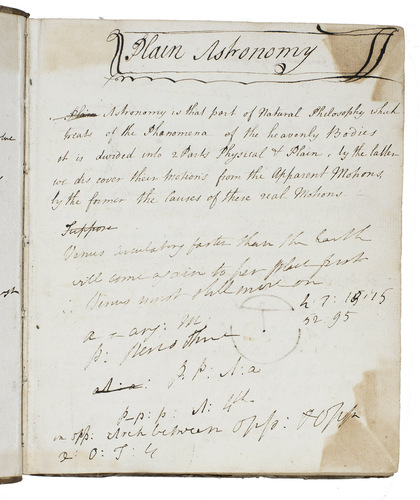 Plain Astronomy
Plain Astronomy is that part of Natural Philosophy which
treats of the Phænomena of the heavenly Bodies
it is divided into 2 Parts Physical & Plain, by the latter
we discover their motions from the Apparent Motions,
by the former the Causes of these real Motions
Suppose
Venus circulating faster than the Earth
will come again to her place first
∴ Venus must still move on
4: 7: 19:15
a = any: M
52.95
P:
P: P: A: a
P: P: P: A: 4th
in opp: Arch between Opp: & Opp